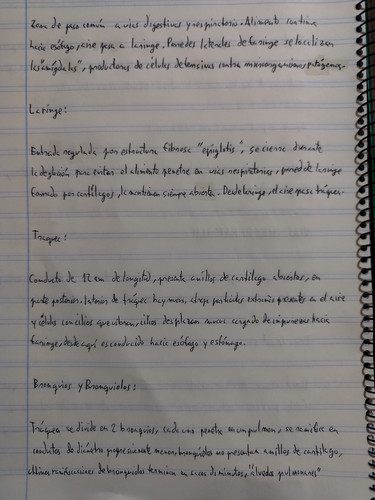 Zona de paso común a vías digestivas y respiratorio. Alimento continua
hacia esófago, aire pasa a laringe. Paredes laterales de faringe se localizan
las "amígdalas", productoras de células defensivas contra microorganismos patógenos.
Laringe:
Entrada regulada por estructura fibrosa "epiglotis", se cierra durante
la deglución para evitar el alimento penetre en vías respiratorias, pared de laringe
formado por cartílagos, la mantienen siempre abierta. Desde laringe, el aire pasa tráquea.
Tráquea:
Conducto de 12 cm de longitud, presenta anillos de cartílago abiertos, en
parte posterior. Interior de tráquea hay moco, atrapa partículas extrañas presentes en el aire
y células con cilios que vibran, cilios desplazan moco cargado de impurezas hacia
faringe, desde aquí es conducido hacia esófago y estómago.
Bronquios y Bronquiolos:
Tráquea se divide en 2 bronquios, cada uno penetra en un pulmon, se ramifica en
conductos de diámetro progresivamente menor, bronquiolos no presentan anillos de cartílago,
últimas ramificaciones de bronquiolos terminan en sacos diminutos, "alveolos pulmonares"